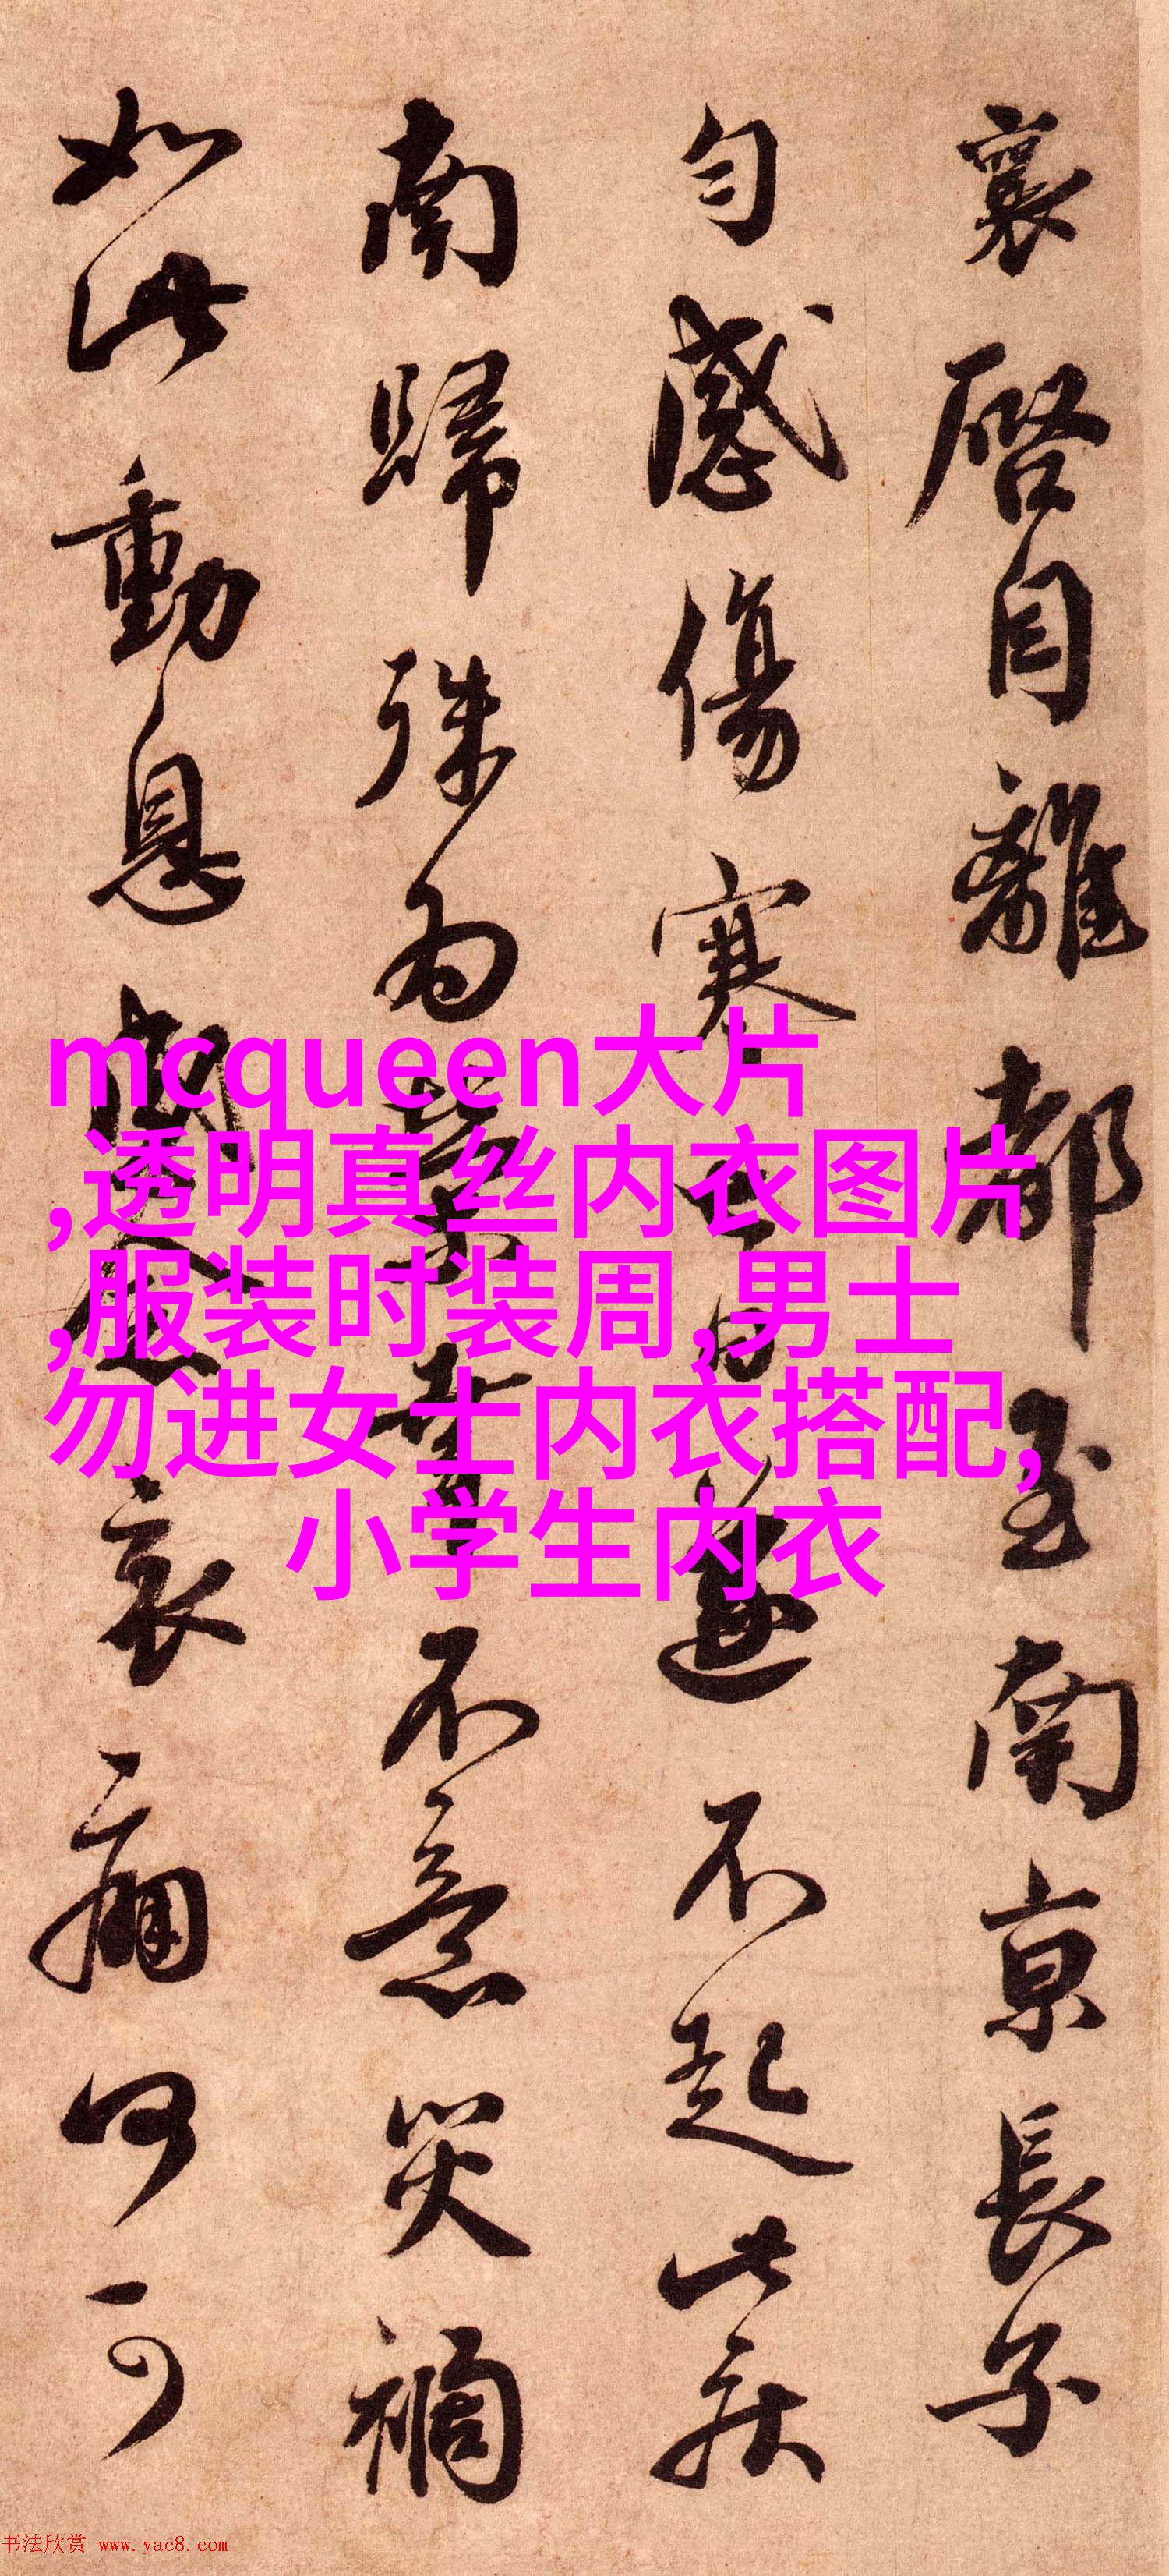 襄啓自離都至南京長子
勻感傷寒七日遂不起此疾
南歸殊為榮幸不意災禍
如此動息感念哀痛何可
mcqueen大片
,透明真丝内衣图片
,服装时装周,男士
勿进女士内衣搭配,
小学生内衣
书法欣赏 www.yac8.com